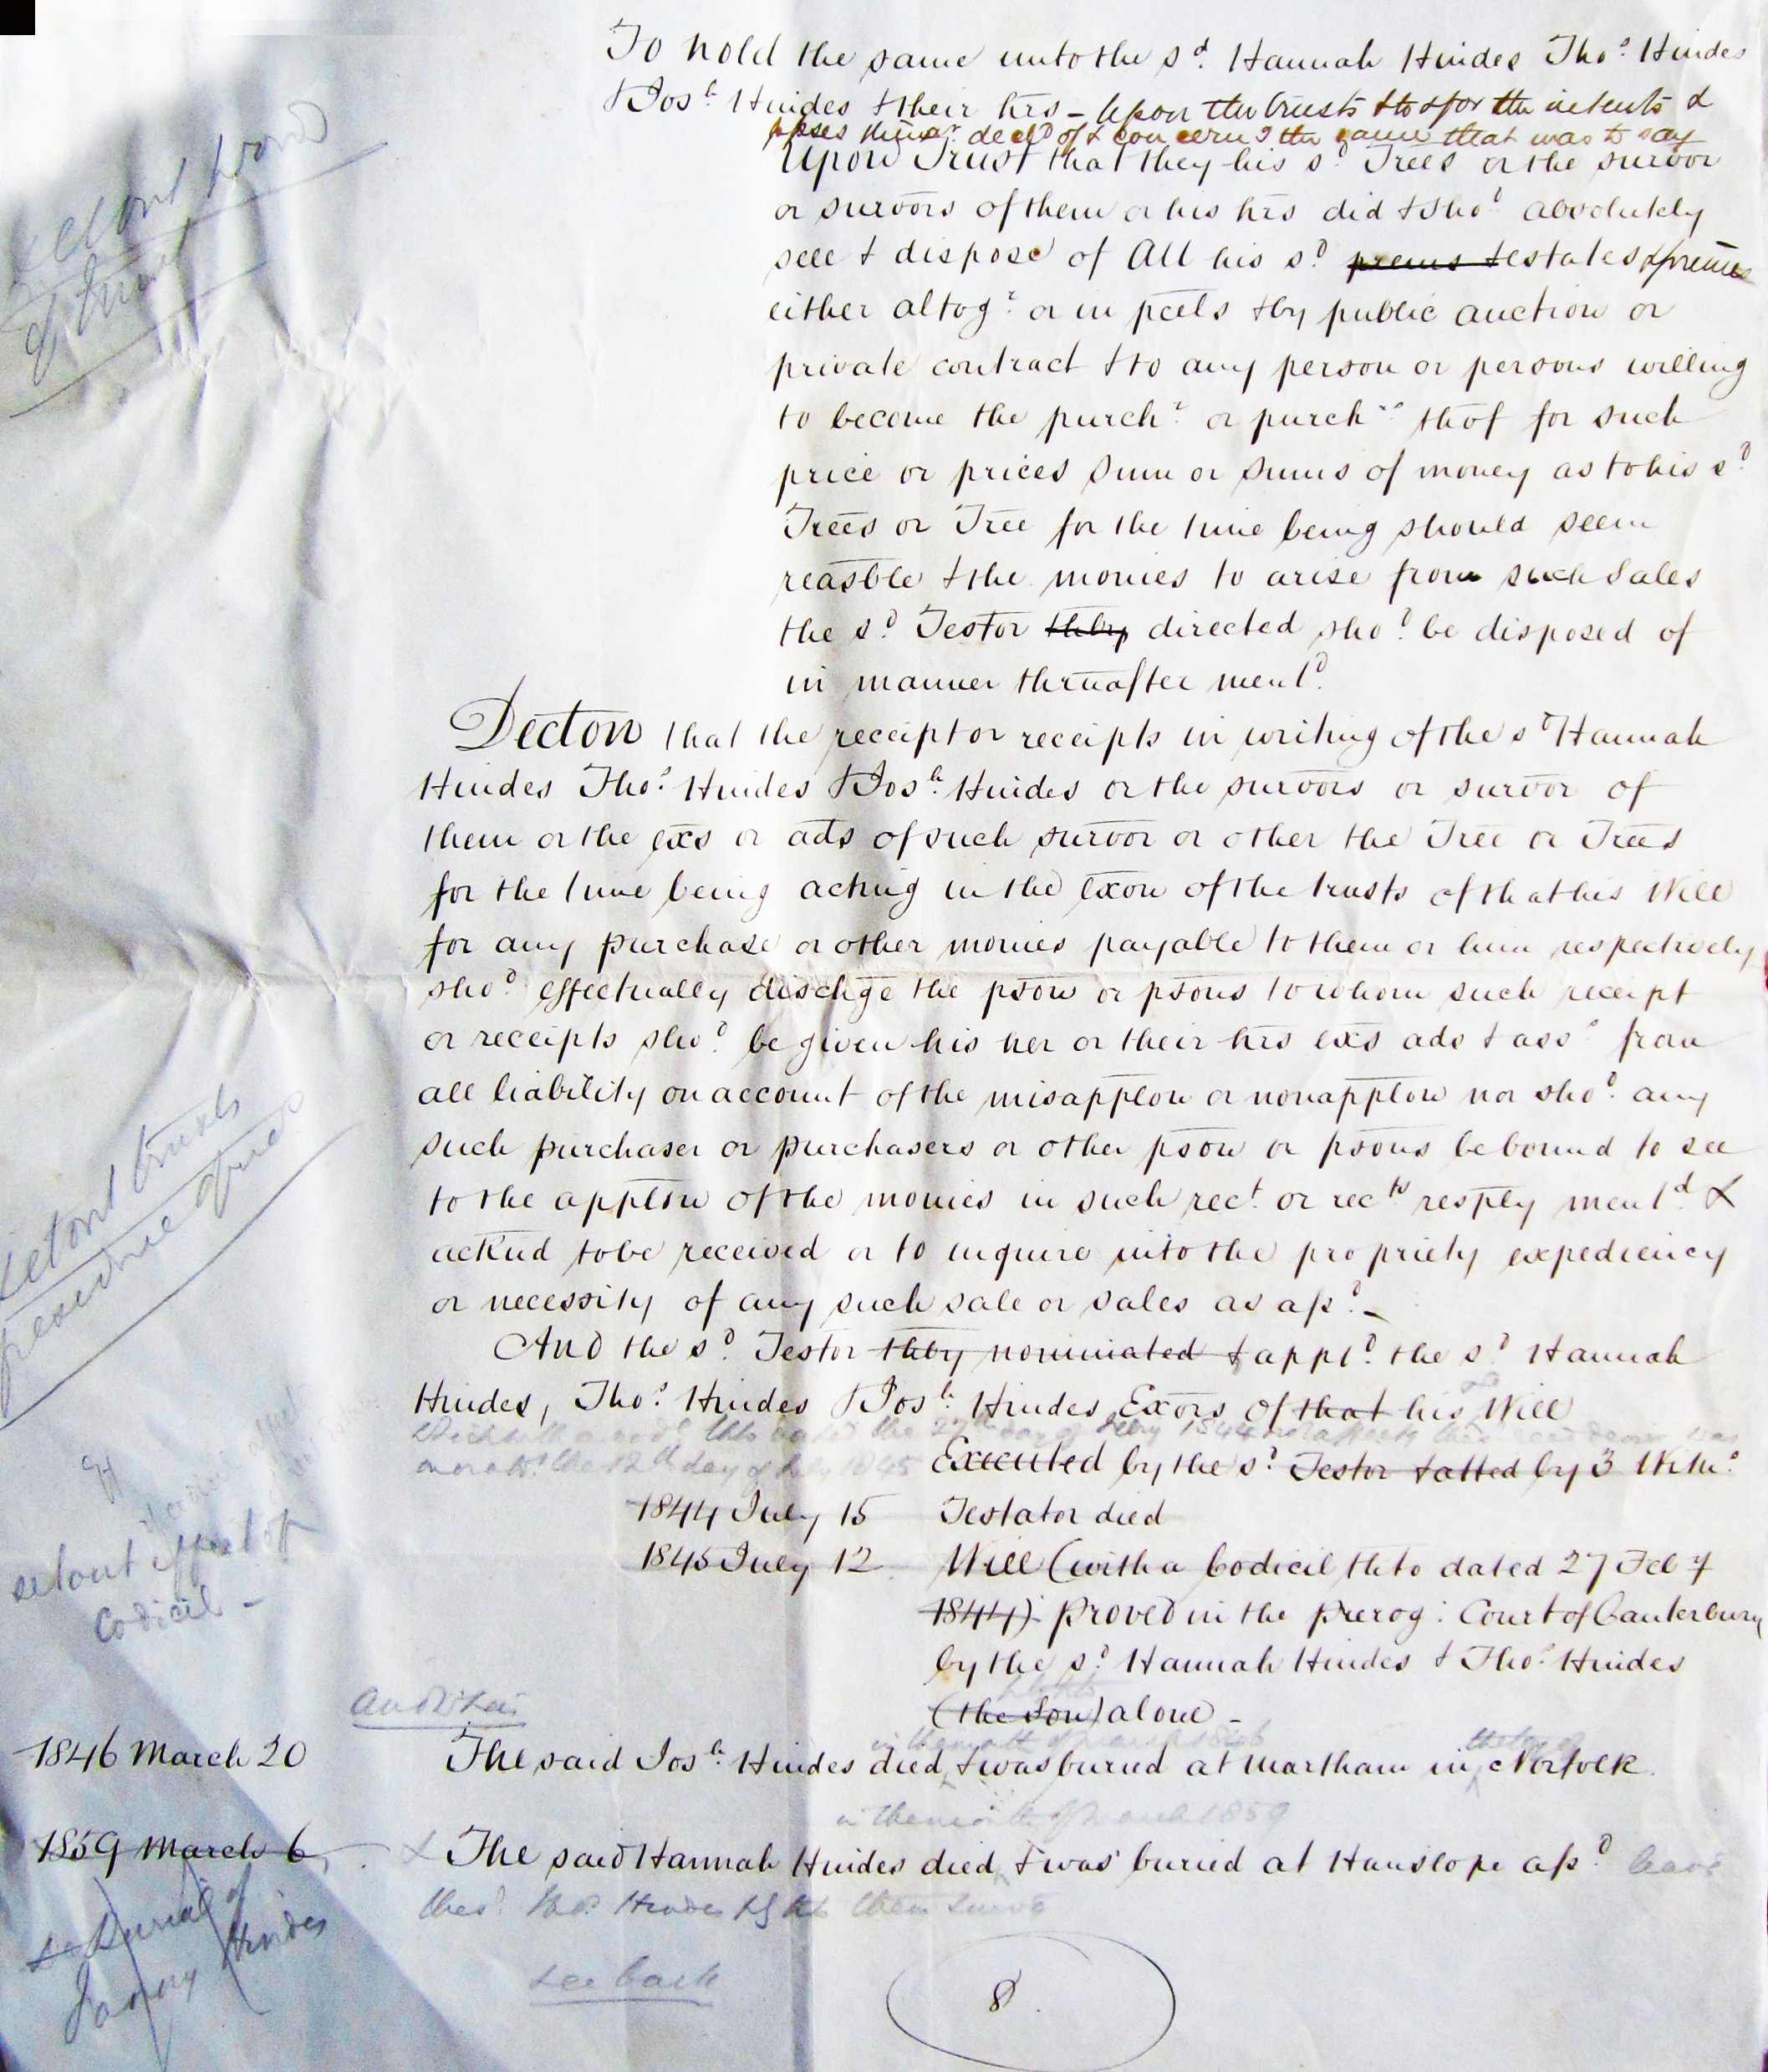 To hold the same unto the sd. Hannah Hindes Thos. Hindes
& Josh. Hindes & their hrs – Upon the trusts & to & for the intents &
ppses thinar. decld of & concerng the same that was to say
Upon Trust that they his sd. Trees or the survor
or survors of them or his hrs did & shod. absolutely
sell & dispose of All his sd. prems & estates & prems
either altogr. or in pcels & by public auction or
private contract & to any person or persons willing
to become the purchr. or purchrs. thof for such
price or prices sum or sums of money as to his sd.
Trees or Tree for the time being should seem
reasble & the monies to arise from such Sales
the sd. Testor thby directed shod. be disposed of
in manner thrnafter mentd.
Declon that the receipt or receipts in writing of the sd Hannah
Hindes Thos. Hindes & Josh. Hindes or the survors or survor of
them or the exs or ads of such survor or other the Tree or Trees
for the time being acting in the exon of the trusts of that his Will
for any purchase or other monies payable to them or him respectively
shod. effectually dischge the pson or psons to whom such receipt
or receipts shod. be given his her or their hrs exs ads & asss. from
all liability on account of the misapplon or nonapplon nor shod. any
such purchaser or purchasers or other pson or psons be bound to see
to the applon of the monies in such rect. or rects resply mentd. &
acknd to be received or to inquire into the propriety expediency
or necessity of any such sale or sales as afsd. –
And the sd. Testor thby nominated & apptd. the sd. Hannah
Hindes, Thos. Hindes & Josh. Hindes Exors of that his Will
Executed by the sd. Testor & atted by 3 Witns.
1844 July 15 Testator died
1845 July 12 Will (with a Codicil thto dated 27 Feby
setout effect of
Codicil –
1844) proved in the Prerog: Court of Canterbury
by the sd. Hannah Hindes & Thos. Hindes
(the Son) alone –
1846 March 20 The said Josh. Hindes died & was buried at Martham in Norfolk.
in the month of March 1859
1859 March 6 & The said Hannah Hindes died & was buried at Hanslope afsd.
See Burial of
Hindes
see back
8.